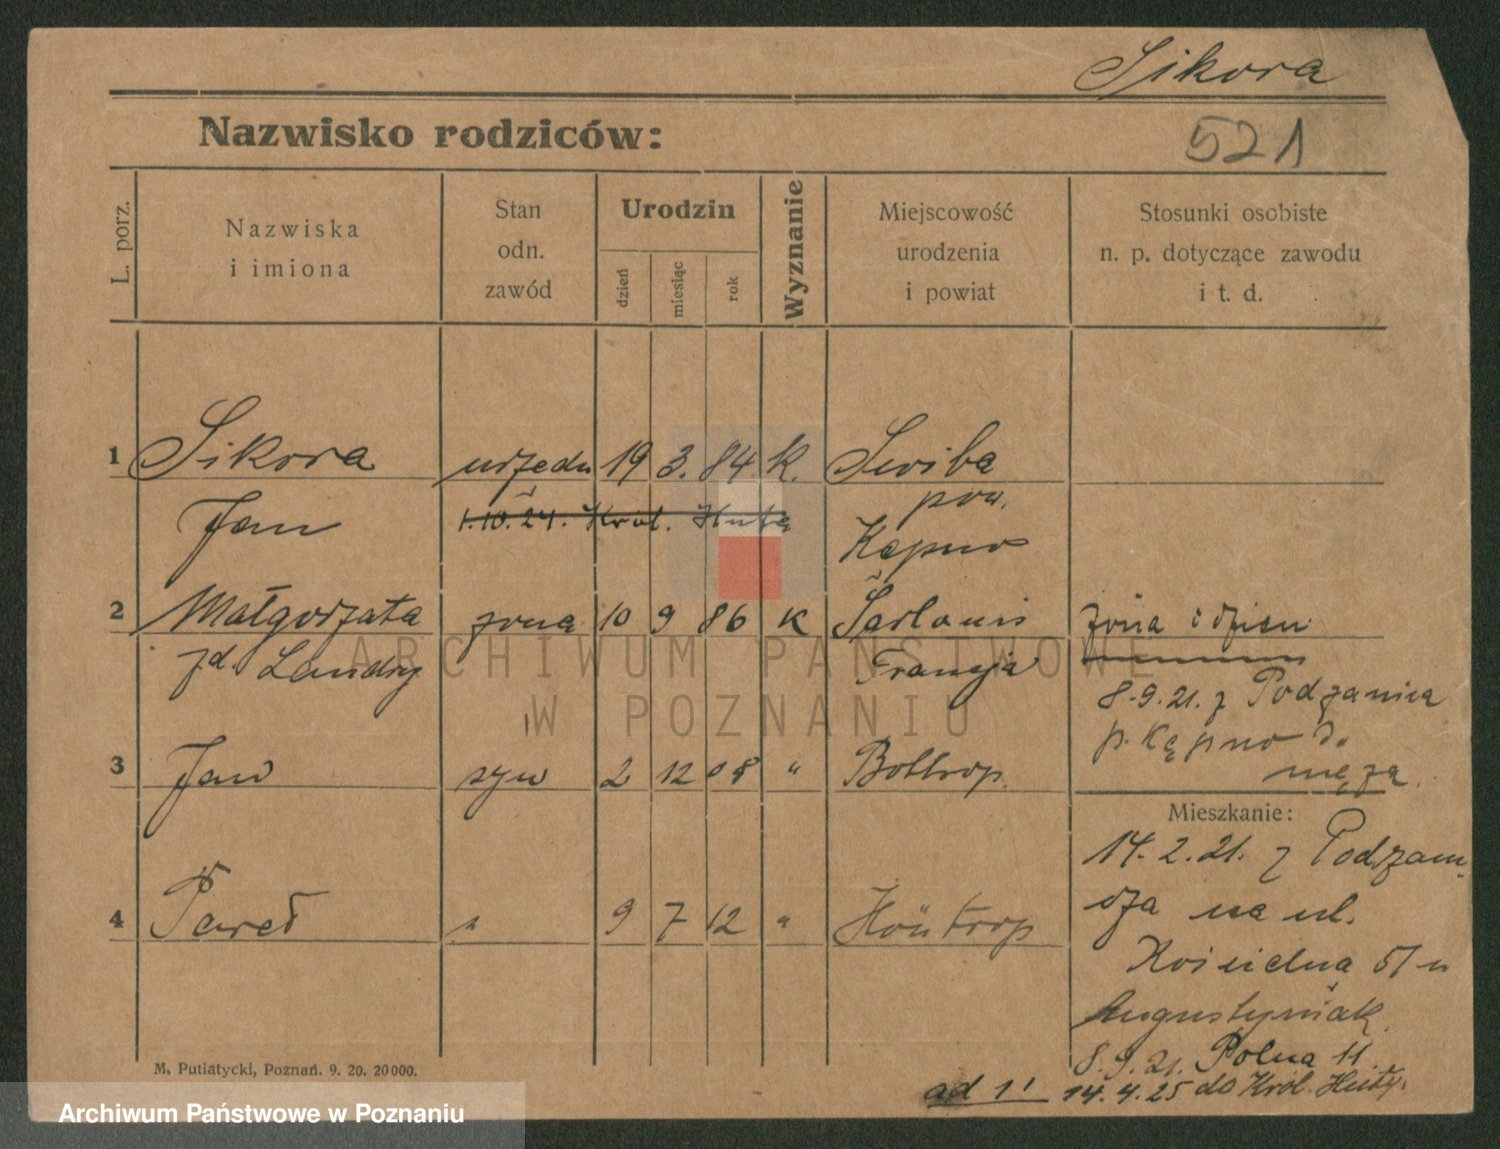 Sikora
Nazwisko rodziców:
521
L. porz.
Nazwiska
i imiona
Stan
odn.
zawód
Urodzin
dzień
miesiąc
rok
Wyznanie
Miejscowość
urodzenia
i powiat
Stosunki osobiste
n. p. dotyczące zawodu
i t. d.
1 Sikora urzędn 19 3. 84 K. Swiba
Jan 1.10.24. Król. Hutą pow.
Kępno
2 Małgorzata żona 10 9 86 K Sarlouis
zd. Landry Francja
żona i dzieci
8.9.21. z Podzamcza
p. Kępno do
męża
3 Jan syn 2 12 08 " Bottrop.
Mieszkanie:
14.2.21. z Podzam-
cza na ul.
4 Paweł " 9 7 12 " Höntrop
Kościelna 51 u
Augustyniak
8.9.21. Polna 11
ad 1' 14.4.25 do Król. Huty.
M. Putiatycki, Poznań. 9. 20. 20000.
ARCHIWUM PAŃSTWOWE
W POZNANIU
Archiwum Państwowe w Poznaniu